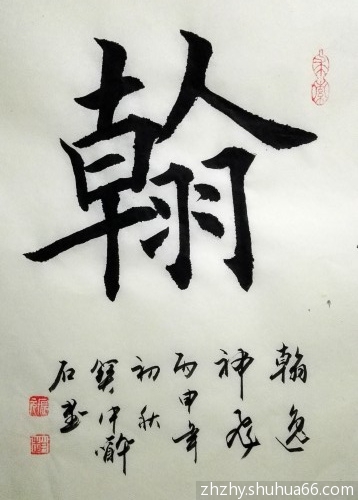 翰
翰逸
神飛
丙申年
初秋
石
zhzhy.shuhua66.com